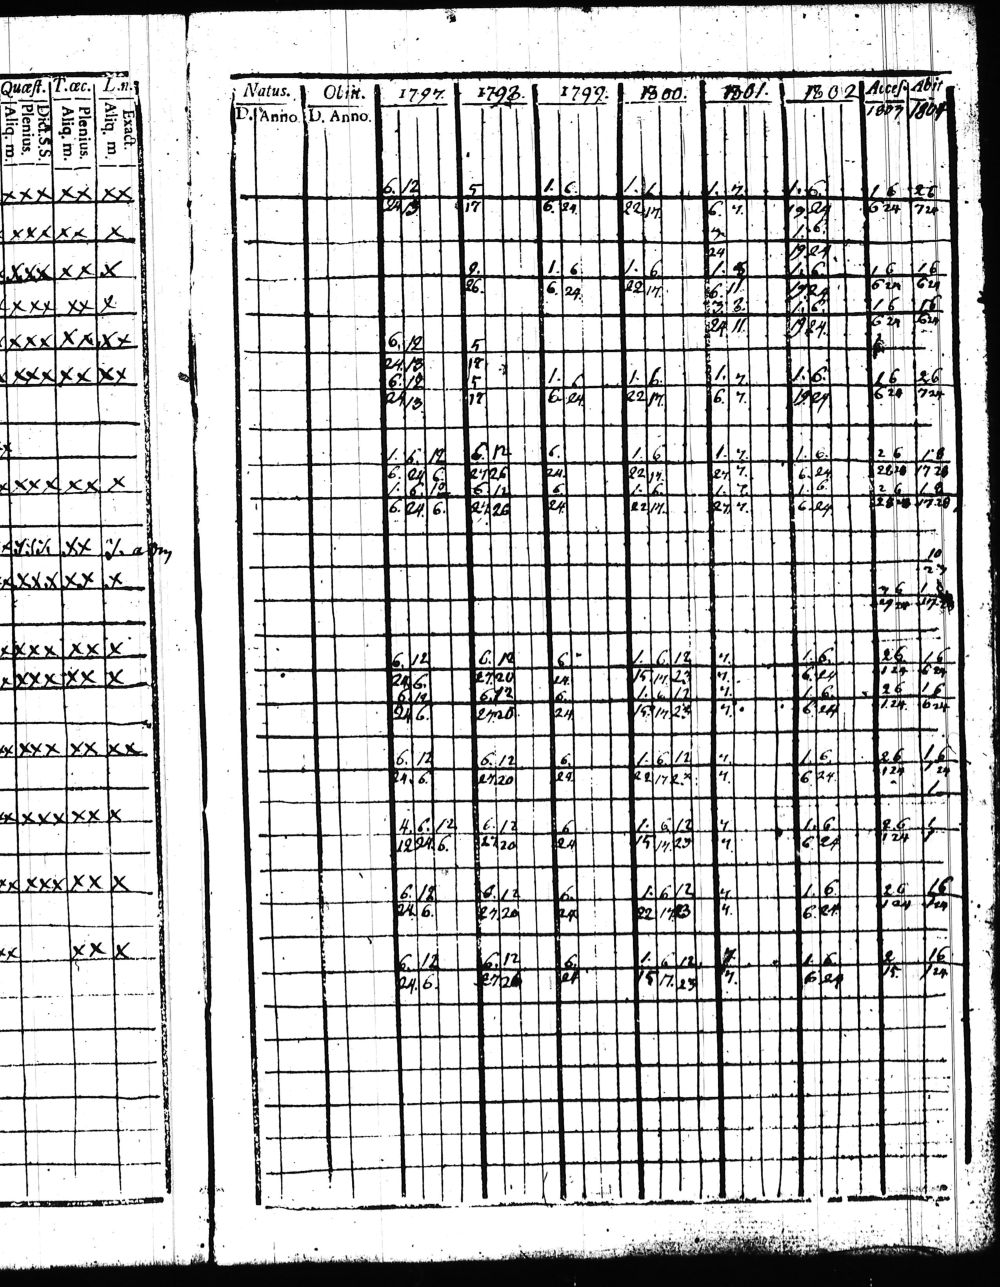 Quæst. T.œc. L.n.
Aliq. m. Plenius. Dict.S.S. Aliq. m. Plenius. Aliq. m. Exact.
Natus. Obiit. 1797. 1798. 1799. 1800. 1801. 1802 Acces. Abiit
D. Anno. D. Anno. 1803 1804
xxx xx xx 6. 12 5 1. 6. 1. 1. 1. 7. 1. 6. 1 6 2 6
24 13 17 6. 24. 22 17. 6. 7. 19 24 6 24 7 24
xxx xx x 7. 1. 6.
24 19 24.
xxx xx x 9. 1. 6 1. 6. 1. 8 1. 6. 1 6 1 6
26. 6. 24. 22 17. 6. 11. 19 24 6 24 6 24
xxx xx x 3. 3. 1. 6. 1 6 1 6
24 11. 19 24. 6 24 6 24
xxxx xx xx 6. 12 5
24. 13 18.
xxxx xx xx 6. 12 5 1. 6 1. 6. 1. 7. 1. 6. 1 6 2 6
24 13 17 6. 24. 22 17. 6. 7. 19 24 6 24 7 24
x
1. 6. 12 6. 12 6. 1. 6 1. 7. 1. 6. 2 6 1 8
6. 24 6. 27 26 24. 22 17. 27. 7. 6. 24 28 28 17 28
xxxx xx x 1. 6. 12 6. 12 6. 1. 6. 1. 7. 1. 6. 2 6 1 8
6. 24. 6. 27 26 24. 22 17. 27. 7. 6 24 28 28 17 28
xx
10
27
xxxx xx x 2 6 1 8
xxxx xx x 6. 12 6. 12 6 1. 6. 12 7. 1. 6. 2 6 1 6
24 6. 27 20 24. 15 17. 23 7. 6. 24 1 24 6 24
xxxx xx x 6. 12 6. 12 6. 1. 6. 12 7. 1. 6. 2 6 1 6
24 6. 27 20 24 15 17 23 7. 6 24 1 24 6 24
xx xxx xx xx 6. 12 6. 12 6. 1. 6 12 7. 1. 6 2 6 1 6
24. 6. 27 20 24. 22 17 23 7. 6 24. 1 24 1 24
xx xxx xx x 4. 6. 12 6. 12 6 1. 6 12 7 1. 6 2 6 1
12 24 6. 27 20 24 15 17. 23 7. 6 24 1 24 1
xx xxx xx x 6. 12 6. 12 6. 1. 6 12 7 1. 6 2 6 1 6
24. 6. 27. 20 24 22 17 23 7. 6. 24 1 24 1 24
xx xx x 6. 12 6. 12 6. 1. 6 12 7. 1. 6 2 1 6
24. 6. 27 20 24 15 17. 23 7. 6 24 15 1 24